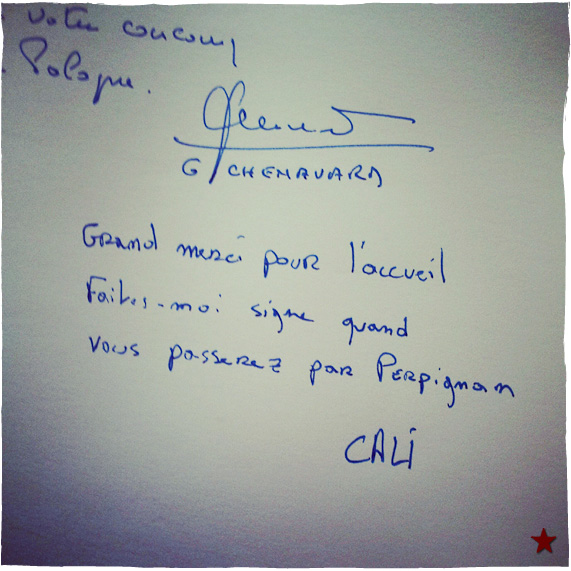 votre concours
Pologne.
G CHENAVARD
Grand merci pour l'accueil
Faites-moi signe quand
vous passerez par Perpignan
CALI